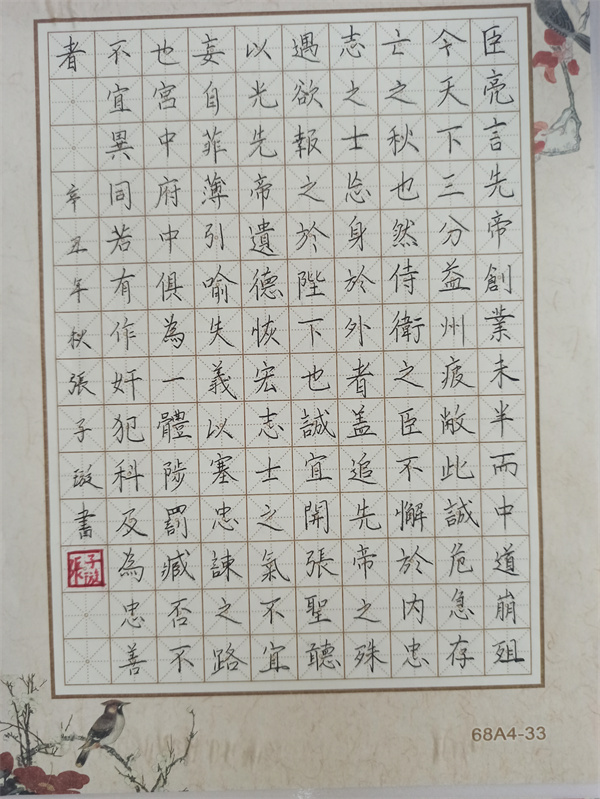 臣亮言先帝創業未半而中道崩殂
今天下三分益州疲敝此誠危急存
亡之秋也然侍衛之臣不懈於内忠
志之士忘身於外者盖追先帝之殊
遇欲報之於陛下也誠宜開張聖聽
以光先帝遺德恢宏志士之氣不宜
妄自菲薄引喻失義以塞忠諫之路
也宮中府中俱為一體陟罰臧否不
不宜異同若有作奸犯科及為忠善
者
辛丑年秋張子璇書
68A4-33